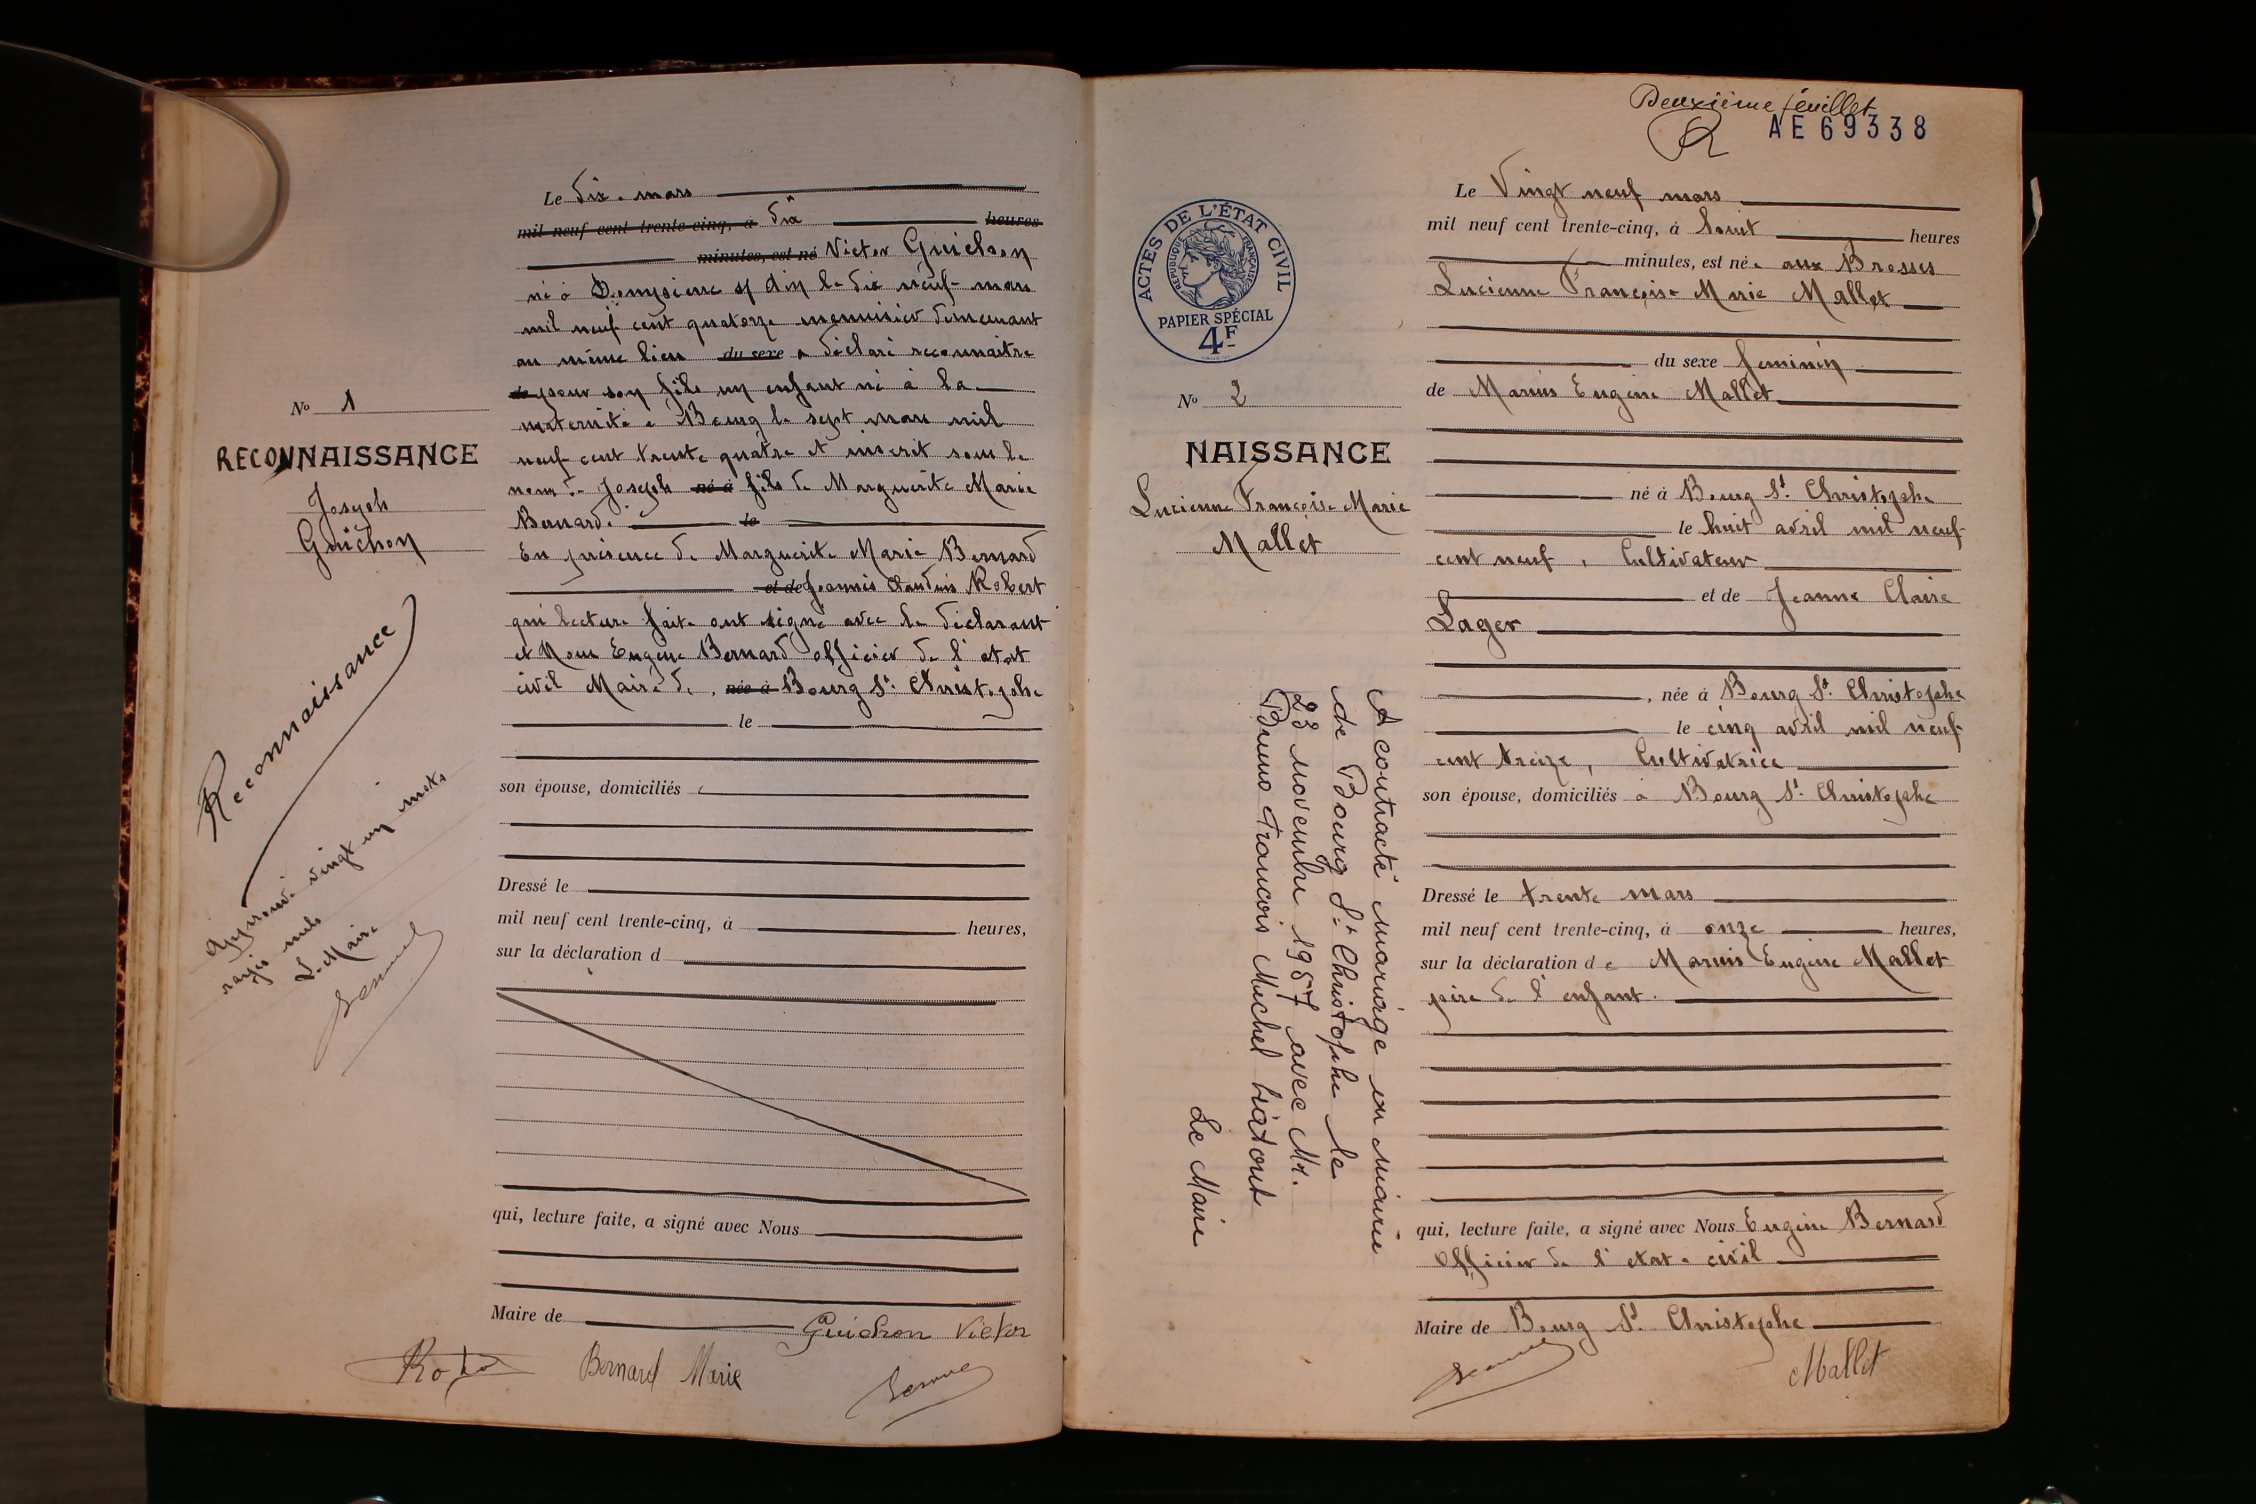 Le dix mars
mil neuf cent trente-cinq, à dix heures
minutes, est né Victor Guichon
né à Dompierre s/ Ain le dix neuf mars
mil neuf cent quatorze menuisier demeurant
au même lieu du sexe a déclaré reconnaitre
de pour son fils un enfant né à la
maternité à Bourg le sept mars mil
neuf cent trente quatre et inscrit sous le
nom de Joseph né à fils de Marguerite Marie
Bernard. le
En présence de Marguerite Marie Bernard
et de Joannis Claudius Robert
qui lecture faite ont signé avec le déclarant
et Nous Eugène Bernard officier de l'etat
civil Maire de, née à Bourg St. Christophe
le
son épouse, domiciliés
Dressé le
mil neuf cent trente-cinq, à heures,
sur la déclaration d
qui, lecture faite, a signé avec Nous
Maire de
Guichon Victor
Bernard Marie
No 1
RECONNAISSANCE
Joseph
Guichon
Reconnaissance
Approuvé vingt un mots
rayés nuls
Le Maire
Deuxième feuillet
AE 69338
ACTES DE L'ÉTAT CIVIL
RÉPUBLIQUE FRANÇAISE
PAPIER SPÉCIAL
4F
No 2
NAISSANCE
Lucienne Françoise Marie
Mallet
A contracté mariage en mairie
de Bourg St Christophe le
23 novembre 1957 avec Mr.
Bruno François Michel
Le Maire
Le Vingt neuf mars
mil neuf cent trente-cinq, à huit heures
minutes, est née aux Brosses
Lucienne Françoise Marie Mallet
du sexe feminin
de Marius Eugène Mallet
né à Bourg St. Christophe
le huit avril mil neuf
cent neuf, Cultivateur
et de Jeanne Claire
Lager
, née à Bourg St. Christophe
le cinq avril mil neuf
cent treize, Cultivatrice
son épouse, domiciliés à Bourg St. Christophe
Dressé le trente mars
mil neuf cent trente-cinq, à onze heures,
sur la déclaration de Marius Eugène Mallet
père de l'enfant.
qui, lecture faite, a signé avec Nous Eugène Bernard
Officier de l'etat-civil
Maire de Bourg St. Christophe
Mallet